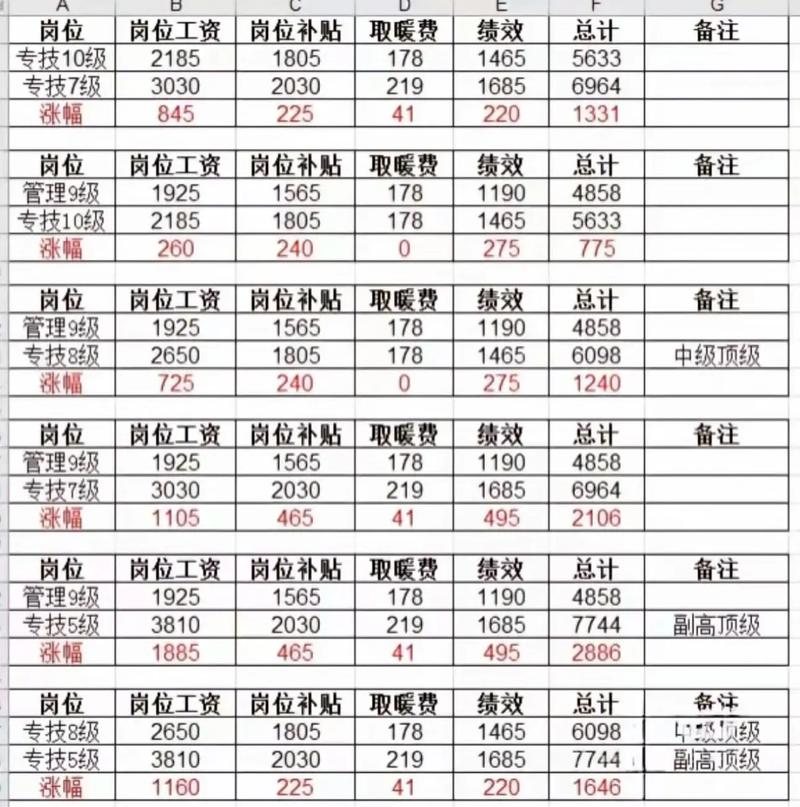 A B C D E F G
岗位 岗位工资 岗位补贴 取暖费 绩效 总计 备注
专技10级 2185 1805 178 1465 5633
专技7级 3030 2030 219 1685 6964
涨幅 845 225 41 220 1331
岗位 岗位工资 岗位补贴 取暖费 绩效 总计 备注
管理9级 1925 1565 178 1190 4858
专技10级 2185 1805 178 1465 5633
涨幅 260 240 0 275 775
岗位 岗位工资 岗位补贴 取暖费 绩效 总计 备注
管理9级 1925 1565 178 1190 4858
专技8级 2650 1805 178 1465 6098 中级顶级
涨幅 725 240 0 275 1240
岗位 岗位工资 岗位补贴 取暖费 绩效 总计 备注
管理9级 1925 1565 178 1190 4858
专技7级 3030 2030 219 1685 6964
涨幅 1105 465 41 495 2106
岗位 岗位工资 岗位补贴 取暖费 绩效 总计 备注
管理9级 1925 1565 178 1190 4858
专技5级 3810 2030 219 1685 7744 副高顶级
涨幅 1885 465 41 495 2886
岗位 岗位工资 岗位补贴 取暖费 绩效 总计 备注
专技8级 2650 1805 178 1465 6098 中级顶级
专技5级 3810 2030 219 1685 7744 副高顶级
涨幅 1160 225 41 220 1646